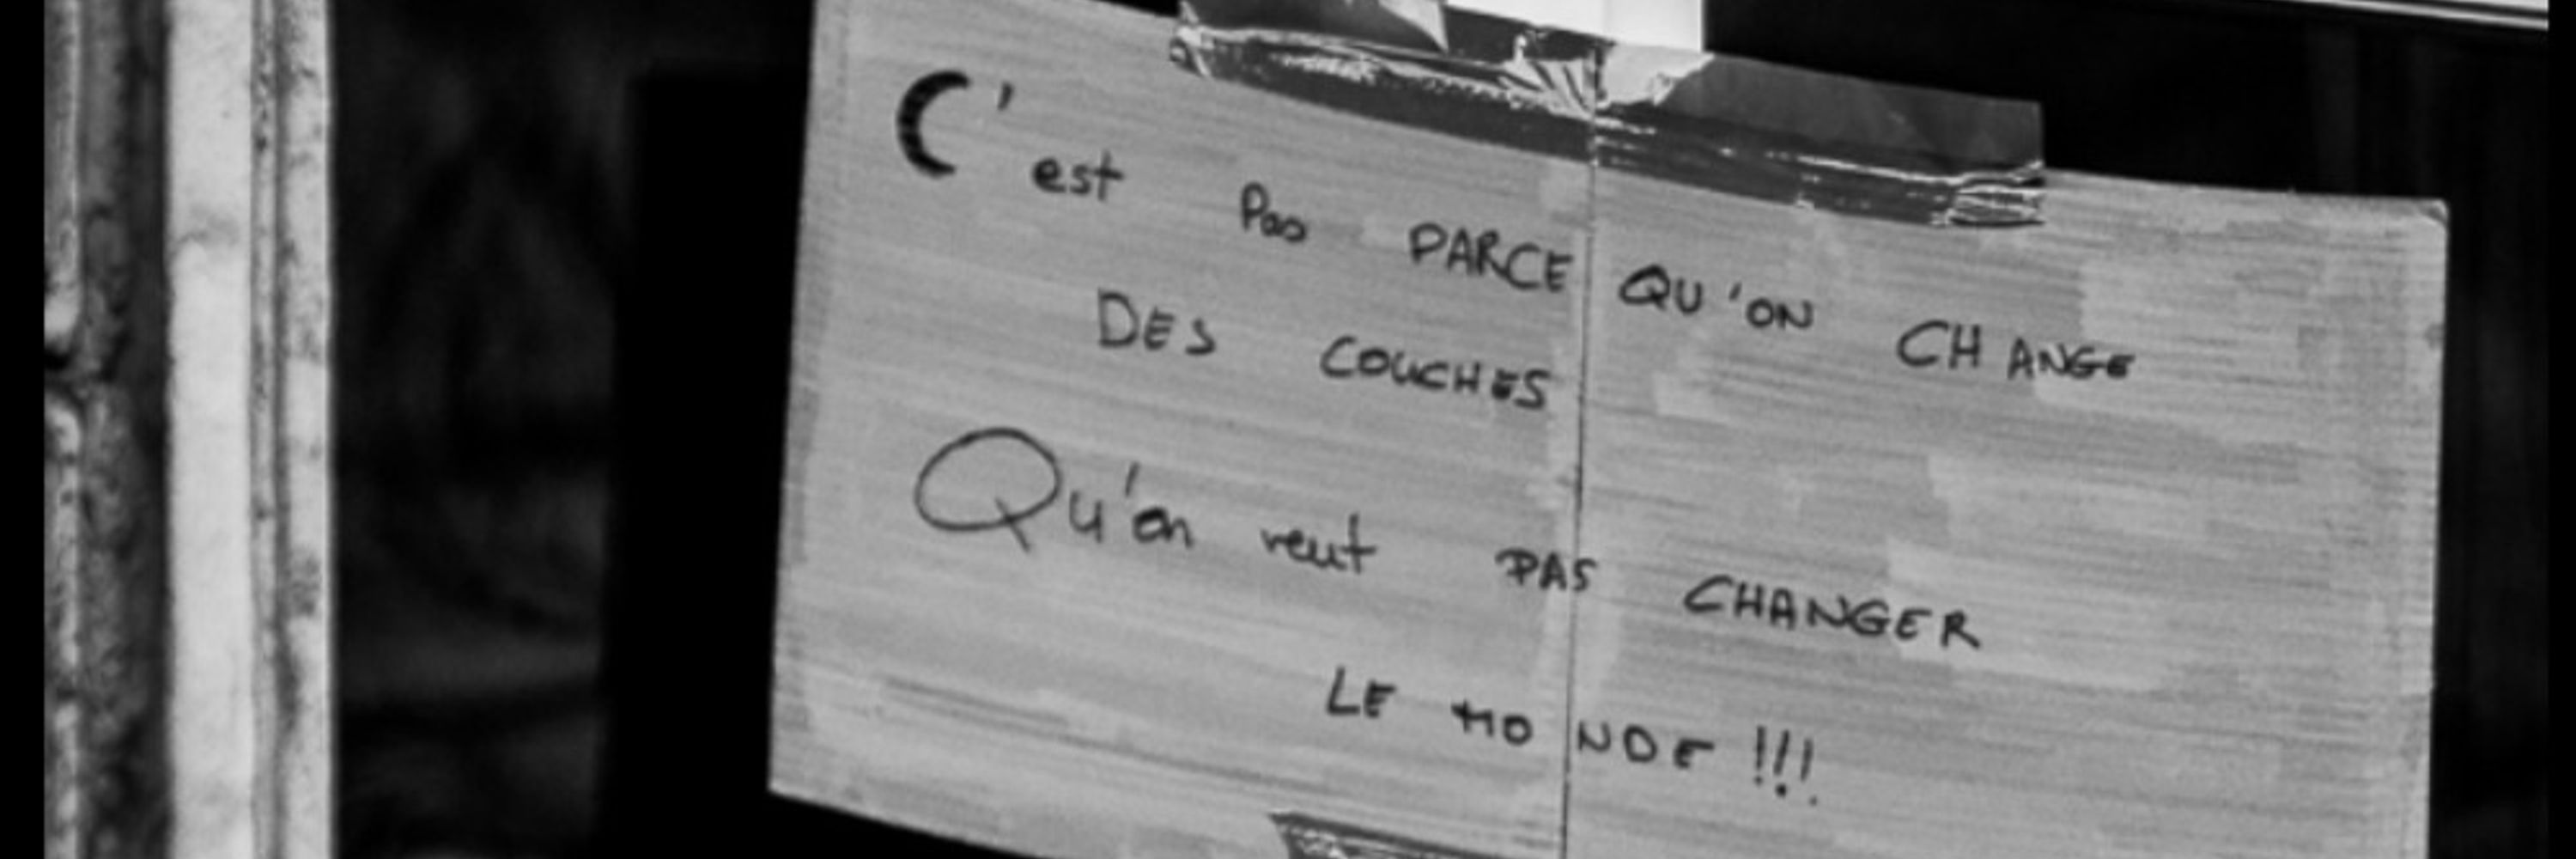 C'est Pas PARCE QU'ON CHANGE
DES COUCHES
Qu'on veut PAS CHANGER
LE MONDE !!!